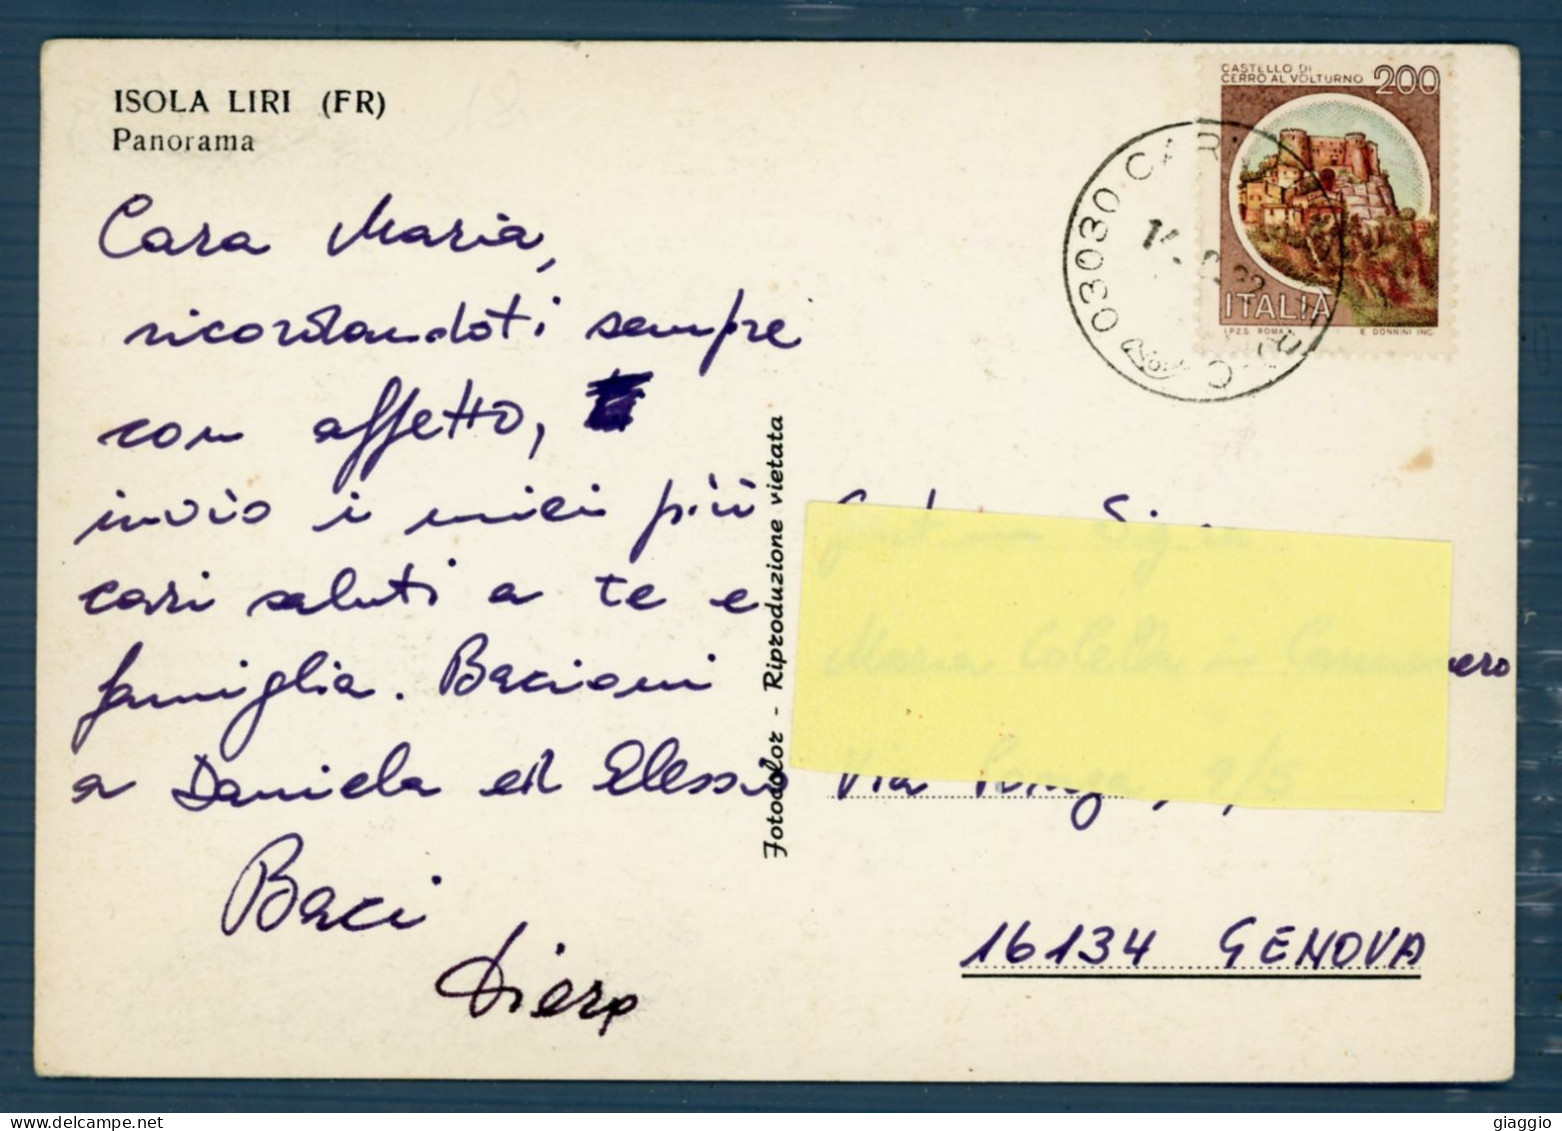 ISOLA LIRI (FR)
Panorama
Cara Maria,
ricordandoti sempre
con affetto,
invio i miei più
cari saluti a te e
famiglia. Bacioni
a Daniela ed Alessio
Baci
Piera
Fotocolor - Riproduzione vietata
CASTELLO DI
CERRO AL VOLTURNO 200
ITALIA
I.P.Z.S. ROMA E. DONNINI INC.
03030
16134 GENOVA
giaggio